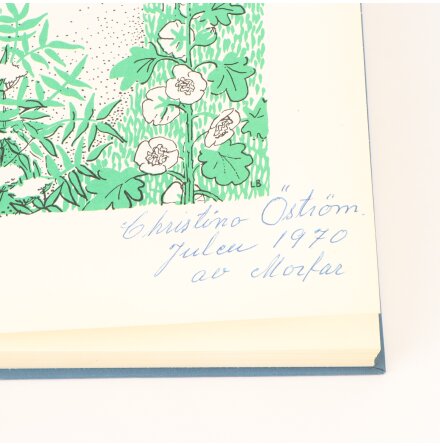 LB
Christina Öström.
Julen 1970
av Morfar